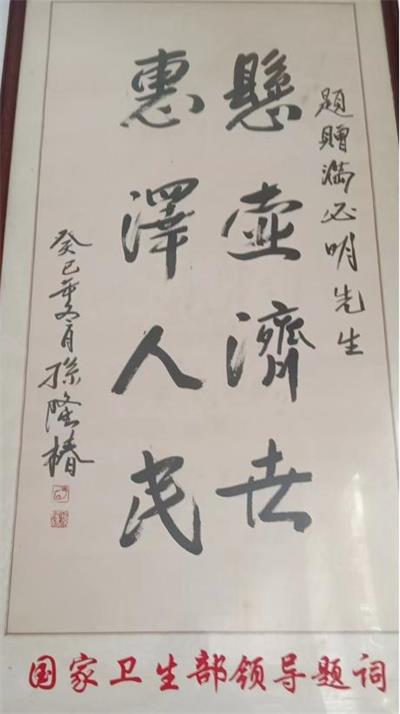 題贈满必明先生
懸壺濟世
惠澤人民
癸巳年五月孫隆椿
国家卫生部领导题词